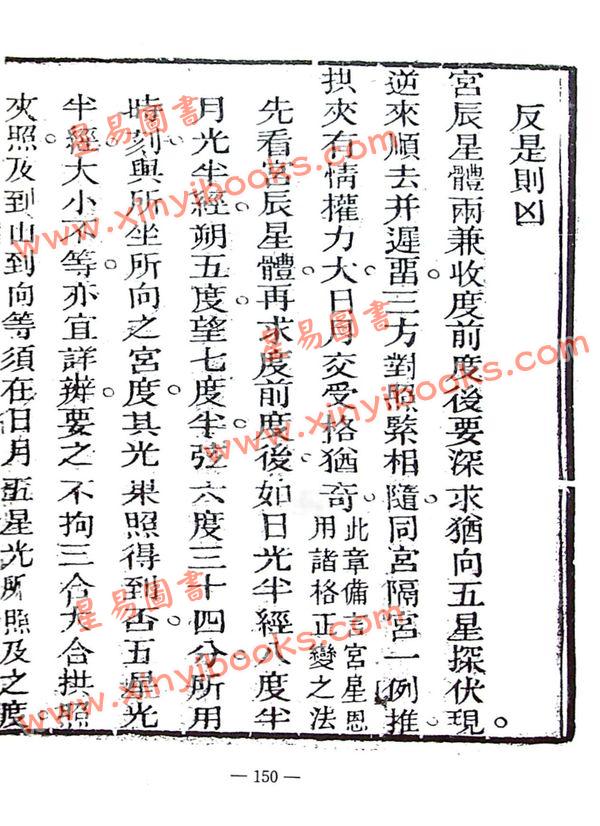 反是則凶
宮辰星體兩兼收度前度後要深求猶向五星探伏現。
逆來順去并遲畱三方對照緊相隨。同宮隔宮一例推。
拱夾有情權力大。日月交受格猶奇。此章備言宮星恩
用諸格正變之法
先看宮辰星體。再求度前度後。如日光半經八度半
月光半經。朔五度望七度半弦六度三十四分。所用
時刻。與所坐所向之宮度。其光果照得到否。五星光
半經。大小不等。亦宜詳辨。要之不拘三合六合拱照
夾照及到山到向等須在日月五星光所照及之度。
星易圖書
www.xinyibooks.com
星易圖書
www.xinyibooks.com
星易圖書
www.xinyibooks.com
— 150 —